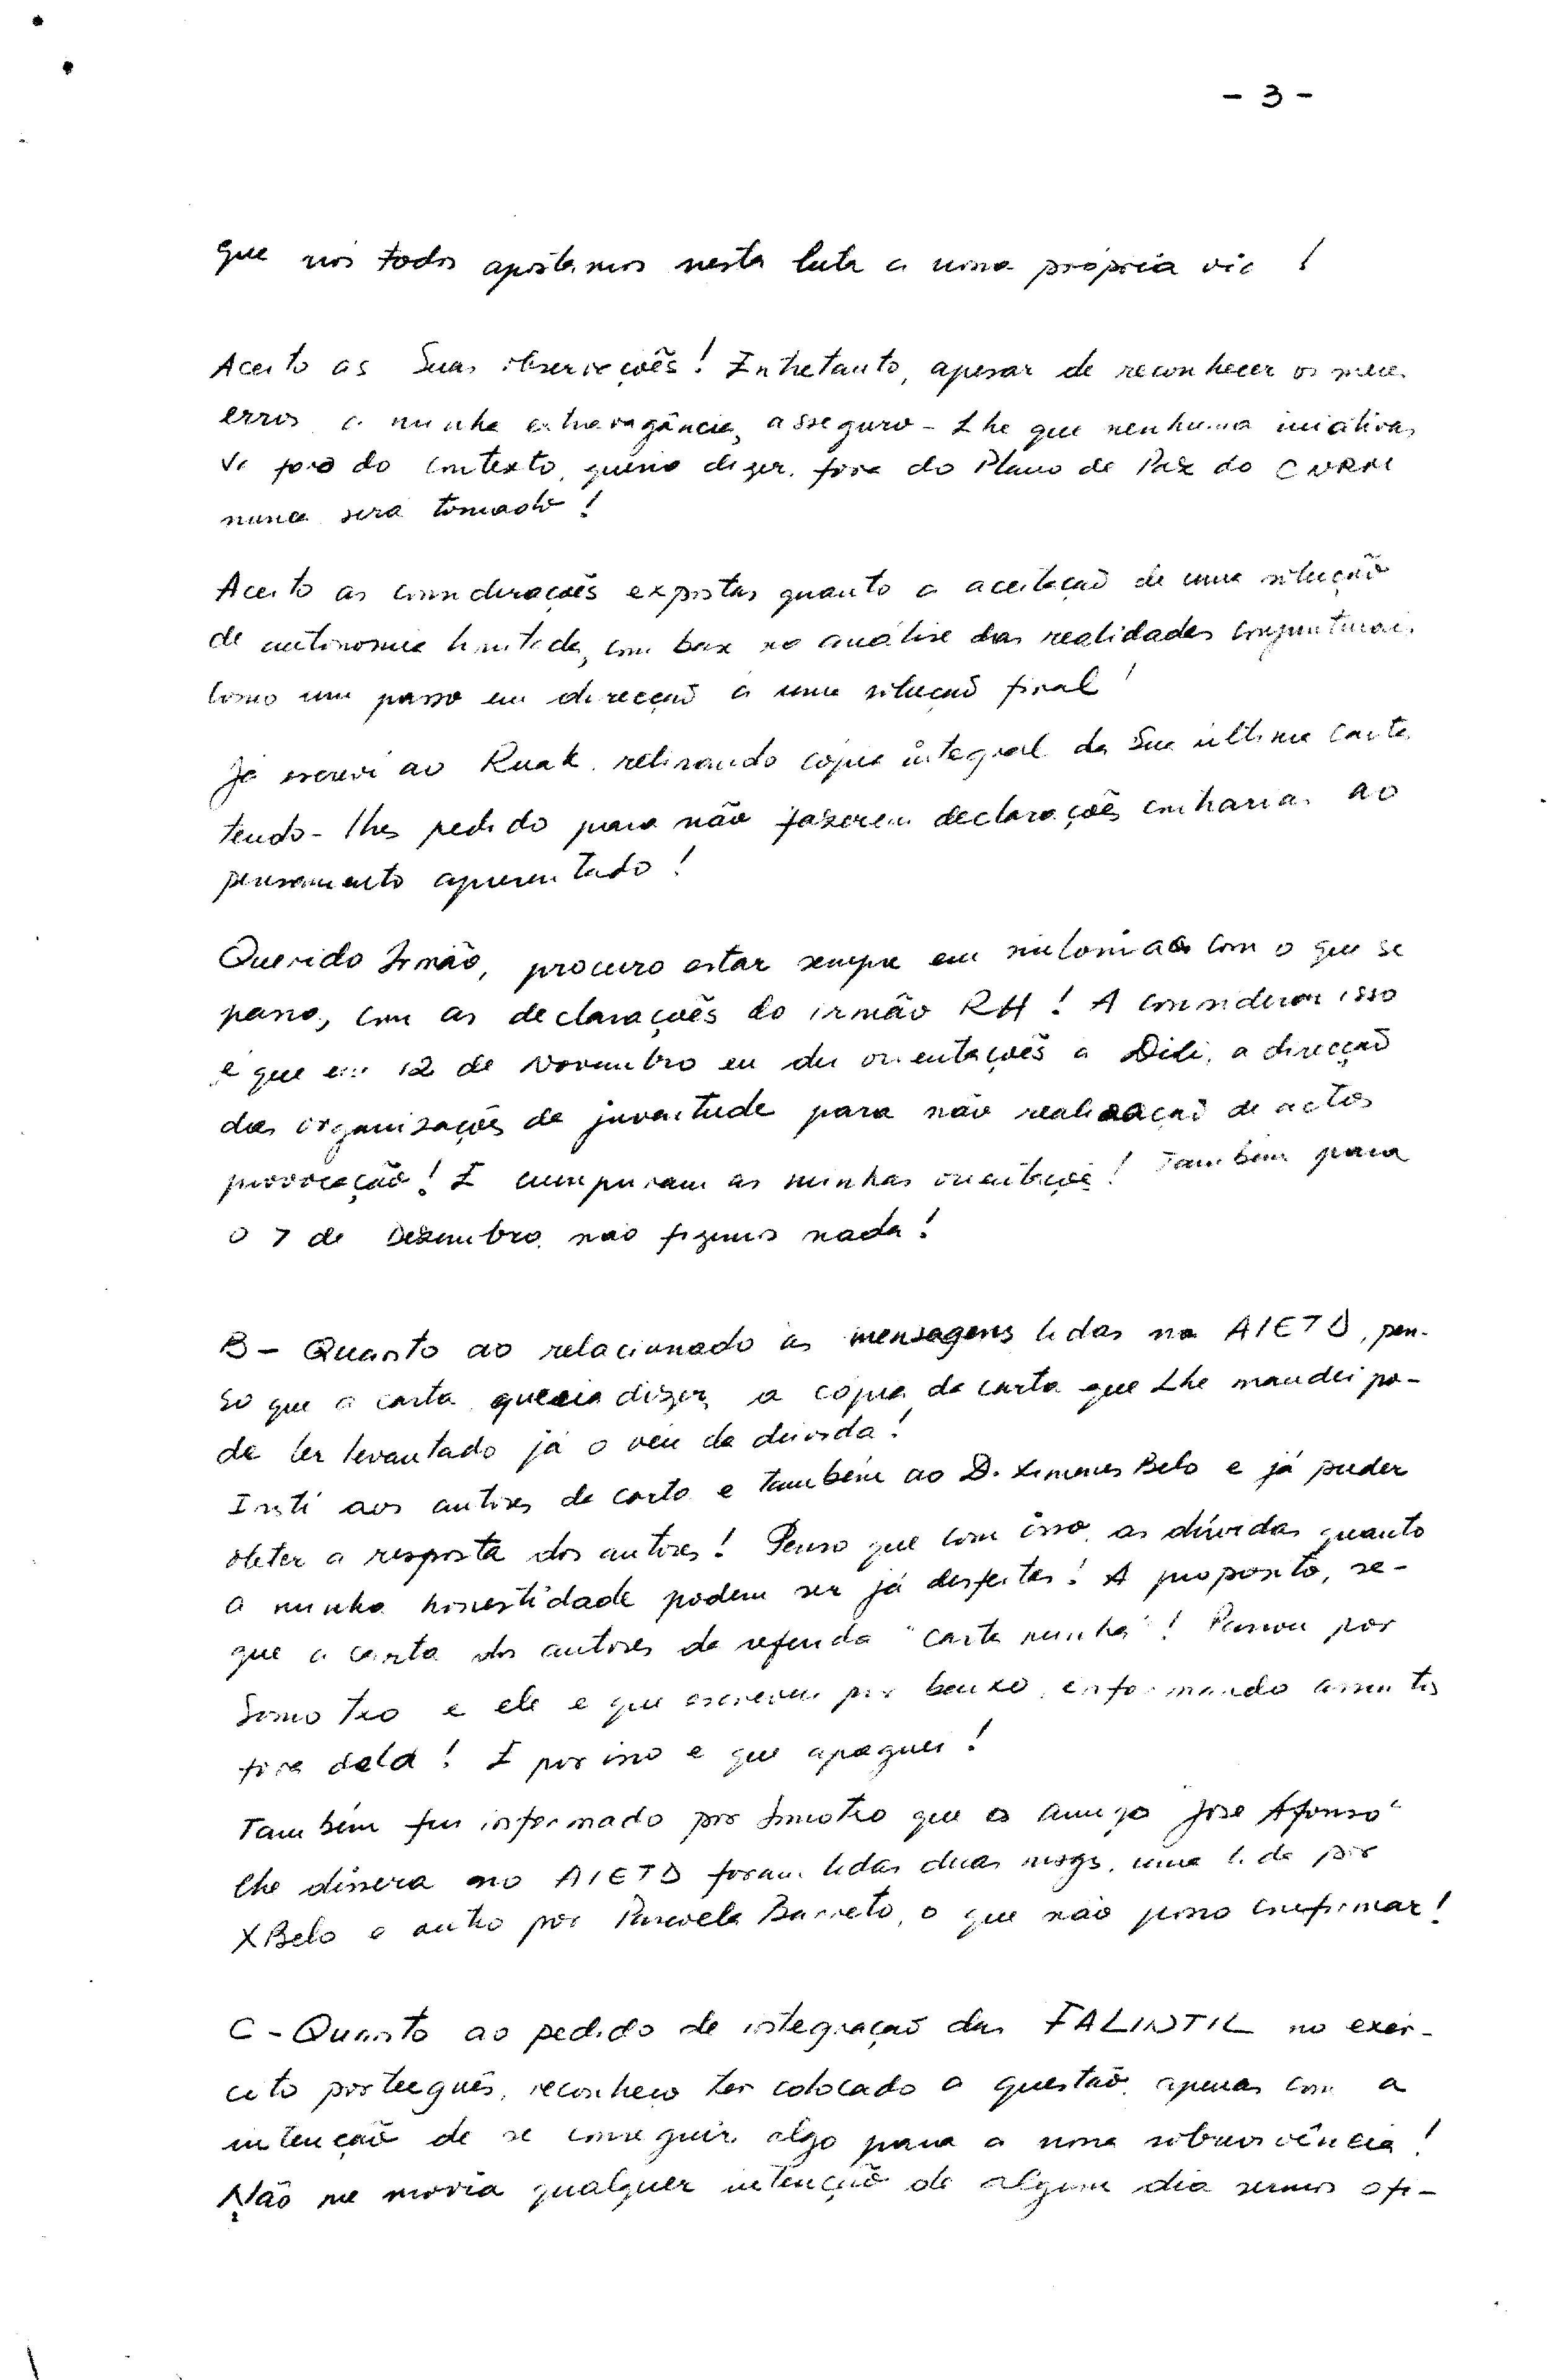 - 3 -
que nós todos apostamos nesta luta a nossa própria vid !
Aceito as Suas observações! Entretanto, apesar de reconhecer os meus
erros a minha extravagância, asseguro-Lhe que nenhuma iniciativa,
fora do contexto, queria dizer, fora do Plano de Paz do CNRM
nunca será tomado!
Aceito as considerações expostas quanto a aceitação de uma solução
de autonomia limitada, com base na análise das realidades conjunturais
como um passo em direcção a uma solução final!
Já escrevi ao Ruak, retirando cópia integral da Sua última carta
tendo-lhes pedido para não fazerem declarações contrárias ao
pensamento apresentado!
Querido Irmão, procuro estar sempre em sintonia com o que se
passa, com as declarações do irmão RH! A considerar isso
é que em 12 de Novembro eu dei orientações a Dili, a direcção
das organizações de juventude para não realização de actos
provocação! E cumpriram as minhas orientaçõe! Também para
o 7 de Dezembro, não fizemos nada!
B - Quanto ao relacionado às mensagens lidas na AIETD, pen-
so que a carta, queria dizer, a cópia da carta que Lhe mandei po-
de ter levantado já o véu da dúvida!
Insti aos autores da carta e também ao D. Ximenes Belo e já puder
obter a resposta dos autores! Penso que com isso, as dúvidas quanto
a minha honestidade podem ser já desfeitas! A propósito, se-
gue a carta dos autores da referida "carta minha"! Passou por
Somotxo e ele é que escreveu por baixo, informando assuntos
fora dela! E por isso é que apaguei!
Também fui informado por Somotxo que o amigo "José Afonso"
lhe dissera no AIETD foram lidas duas msgs, uma lida por
XBelo e outro por Barreto, o que não posso confirmar!
C - Quanto ao pedido de integração das FALINTIL no exér-
cito português, reconheço ter colocado a questão, apenas com a
intenção de se conseguir algo para a nossa sobrevivência!
Não me movia qualquer intenção de algum dia sermos ofi-